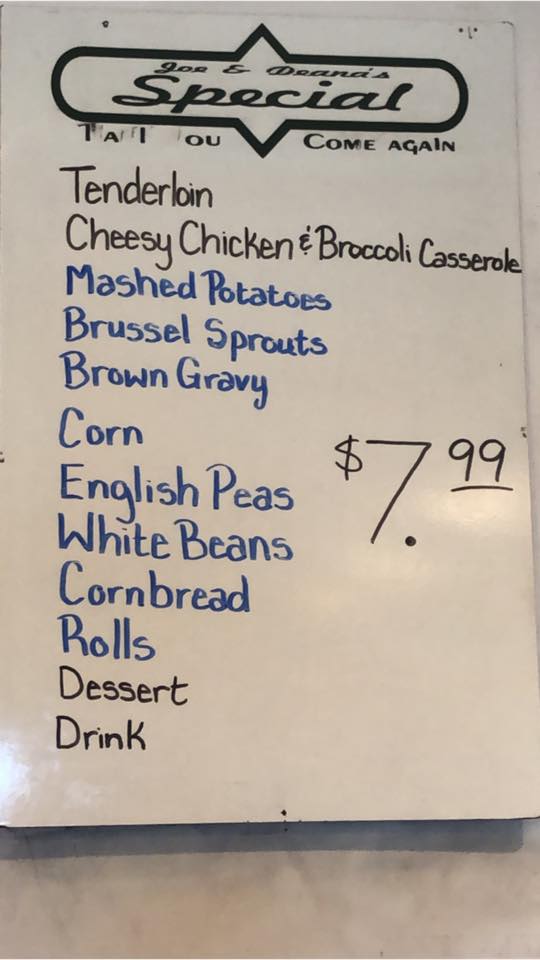 Joe & Deana's
Special
COME AGAIN
Tenderloin
Cheesy Chicken & Broccoli Casserole
Mashed Potatoes
Brussel Sprouts
Brown Gravy
Corn
$7.99
English Peas
White Beans
Cornbread
Rolls
Dessert
Drink